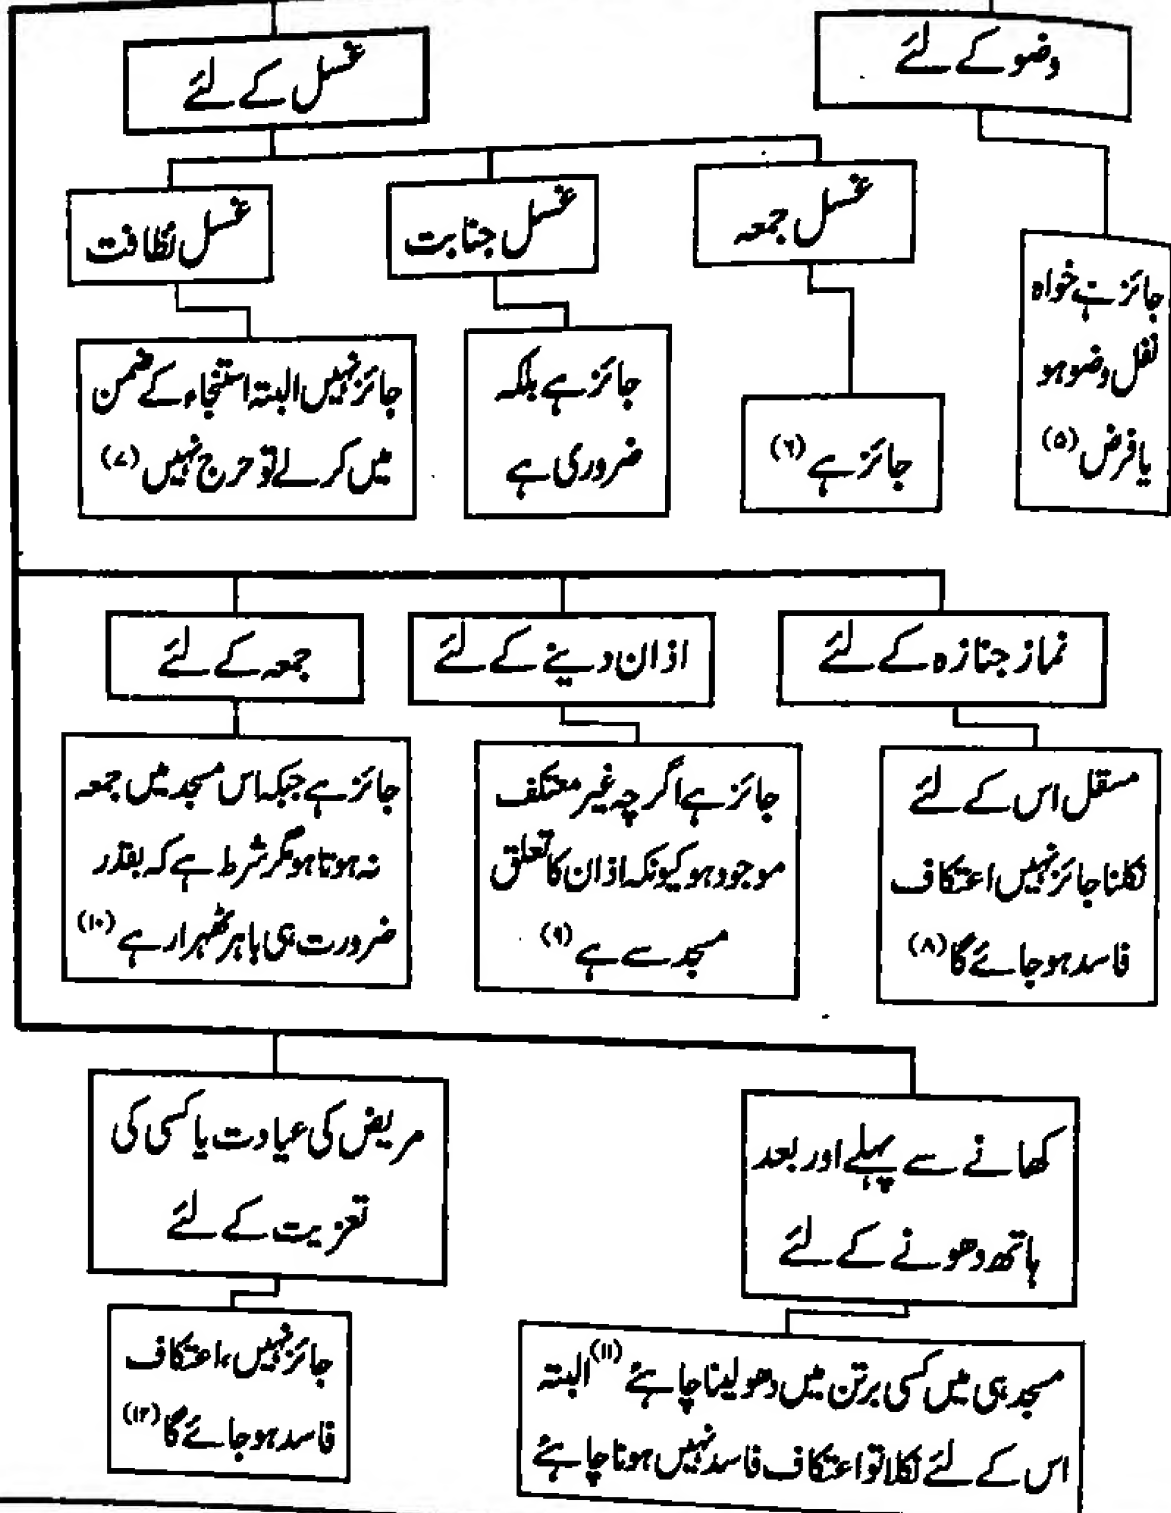 وضو کے لئے
جائز ہے خواہ
نفل وضو ہو
یا فرض (۵)
غسل کے لئے
غسل جمعہ
جائز ہے (۶)
غسل جنابت
جائز ہے بلکہ
ضروری ہے
غسل نظافت
جائز نہیں البتہ استنجاء کے ضمن
میں کر لے تو حرج نہیں (۷)
نماز جنازہ کے لئے
مستقل اس کے لئے
نکلنا جائز نہیں اعتکاف
فاسد ہو جائے گا (۸)
اذان دینے کے لئے
جائز ہے اگرچہ غیر معتکف
موجود ہو کیونکہ اذان کا تعلق
مسجد سے ہے (۹)
جمعہ کے لئے
جائز ہے جبکہ اس مسجد میں جمعہ
نہ ہوتا ہو مگر شرط ہے کہ بقدر
ضرورت ہی باہر ٹھہرا رہے (۱۰)
کھانے سے پہلے اور بعد
ہاتھ دھونے کے لئے
مسجد ہی میں کسی برتن میں دھو لینا چاہئے (۱۱) البتہ
اس کے لئے نکلا تو اعتکاف فاسد نہیں ہونا چاہئے
مریض کی عیادت یا کسی کی
تعزیت کے لئے
جائز نہیں، اعتکاف
فاسد ہو جائے گا (۱۲)